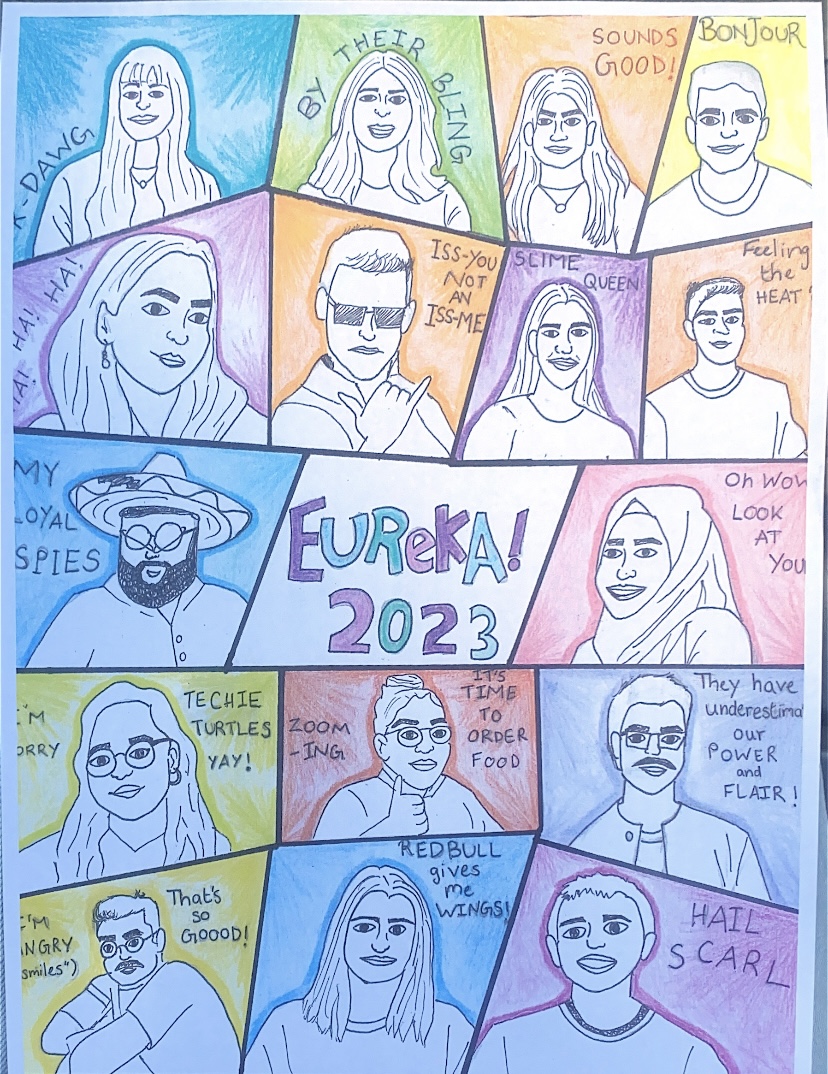 K-DAWG
BY THEIR BLING
SOUNDS
GOOD!
BONJOUR
HA! HA! HA!
ISS-YOU
NOT
AN
ISS-ME
SLIME
QUEEN
Feeling
the
HEAT
MY
LOYAL
SPIES
EUReKA!
2023
Oh Wow
LOOK
AT
You
I'M
SORRY
TECHIE
TURTLES
YAY!
ZOOM
-ING
IT'S
TIME
TO
ORDER
FOOD
They have
underestima
our
POWER
and
FLAIR!
I'M
ANGRY
smiles")
That's
so
GOOOD!
REDBULL
gives
me
WINGS!
HAIL
SCARL